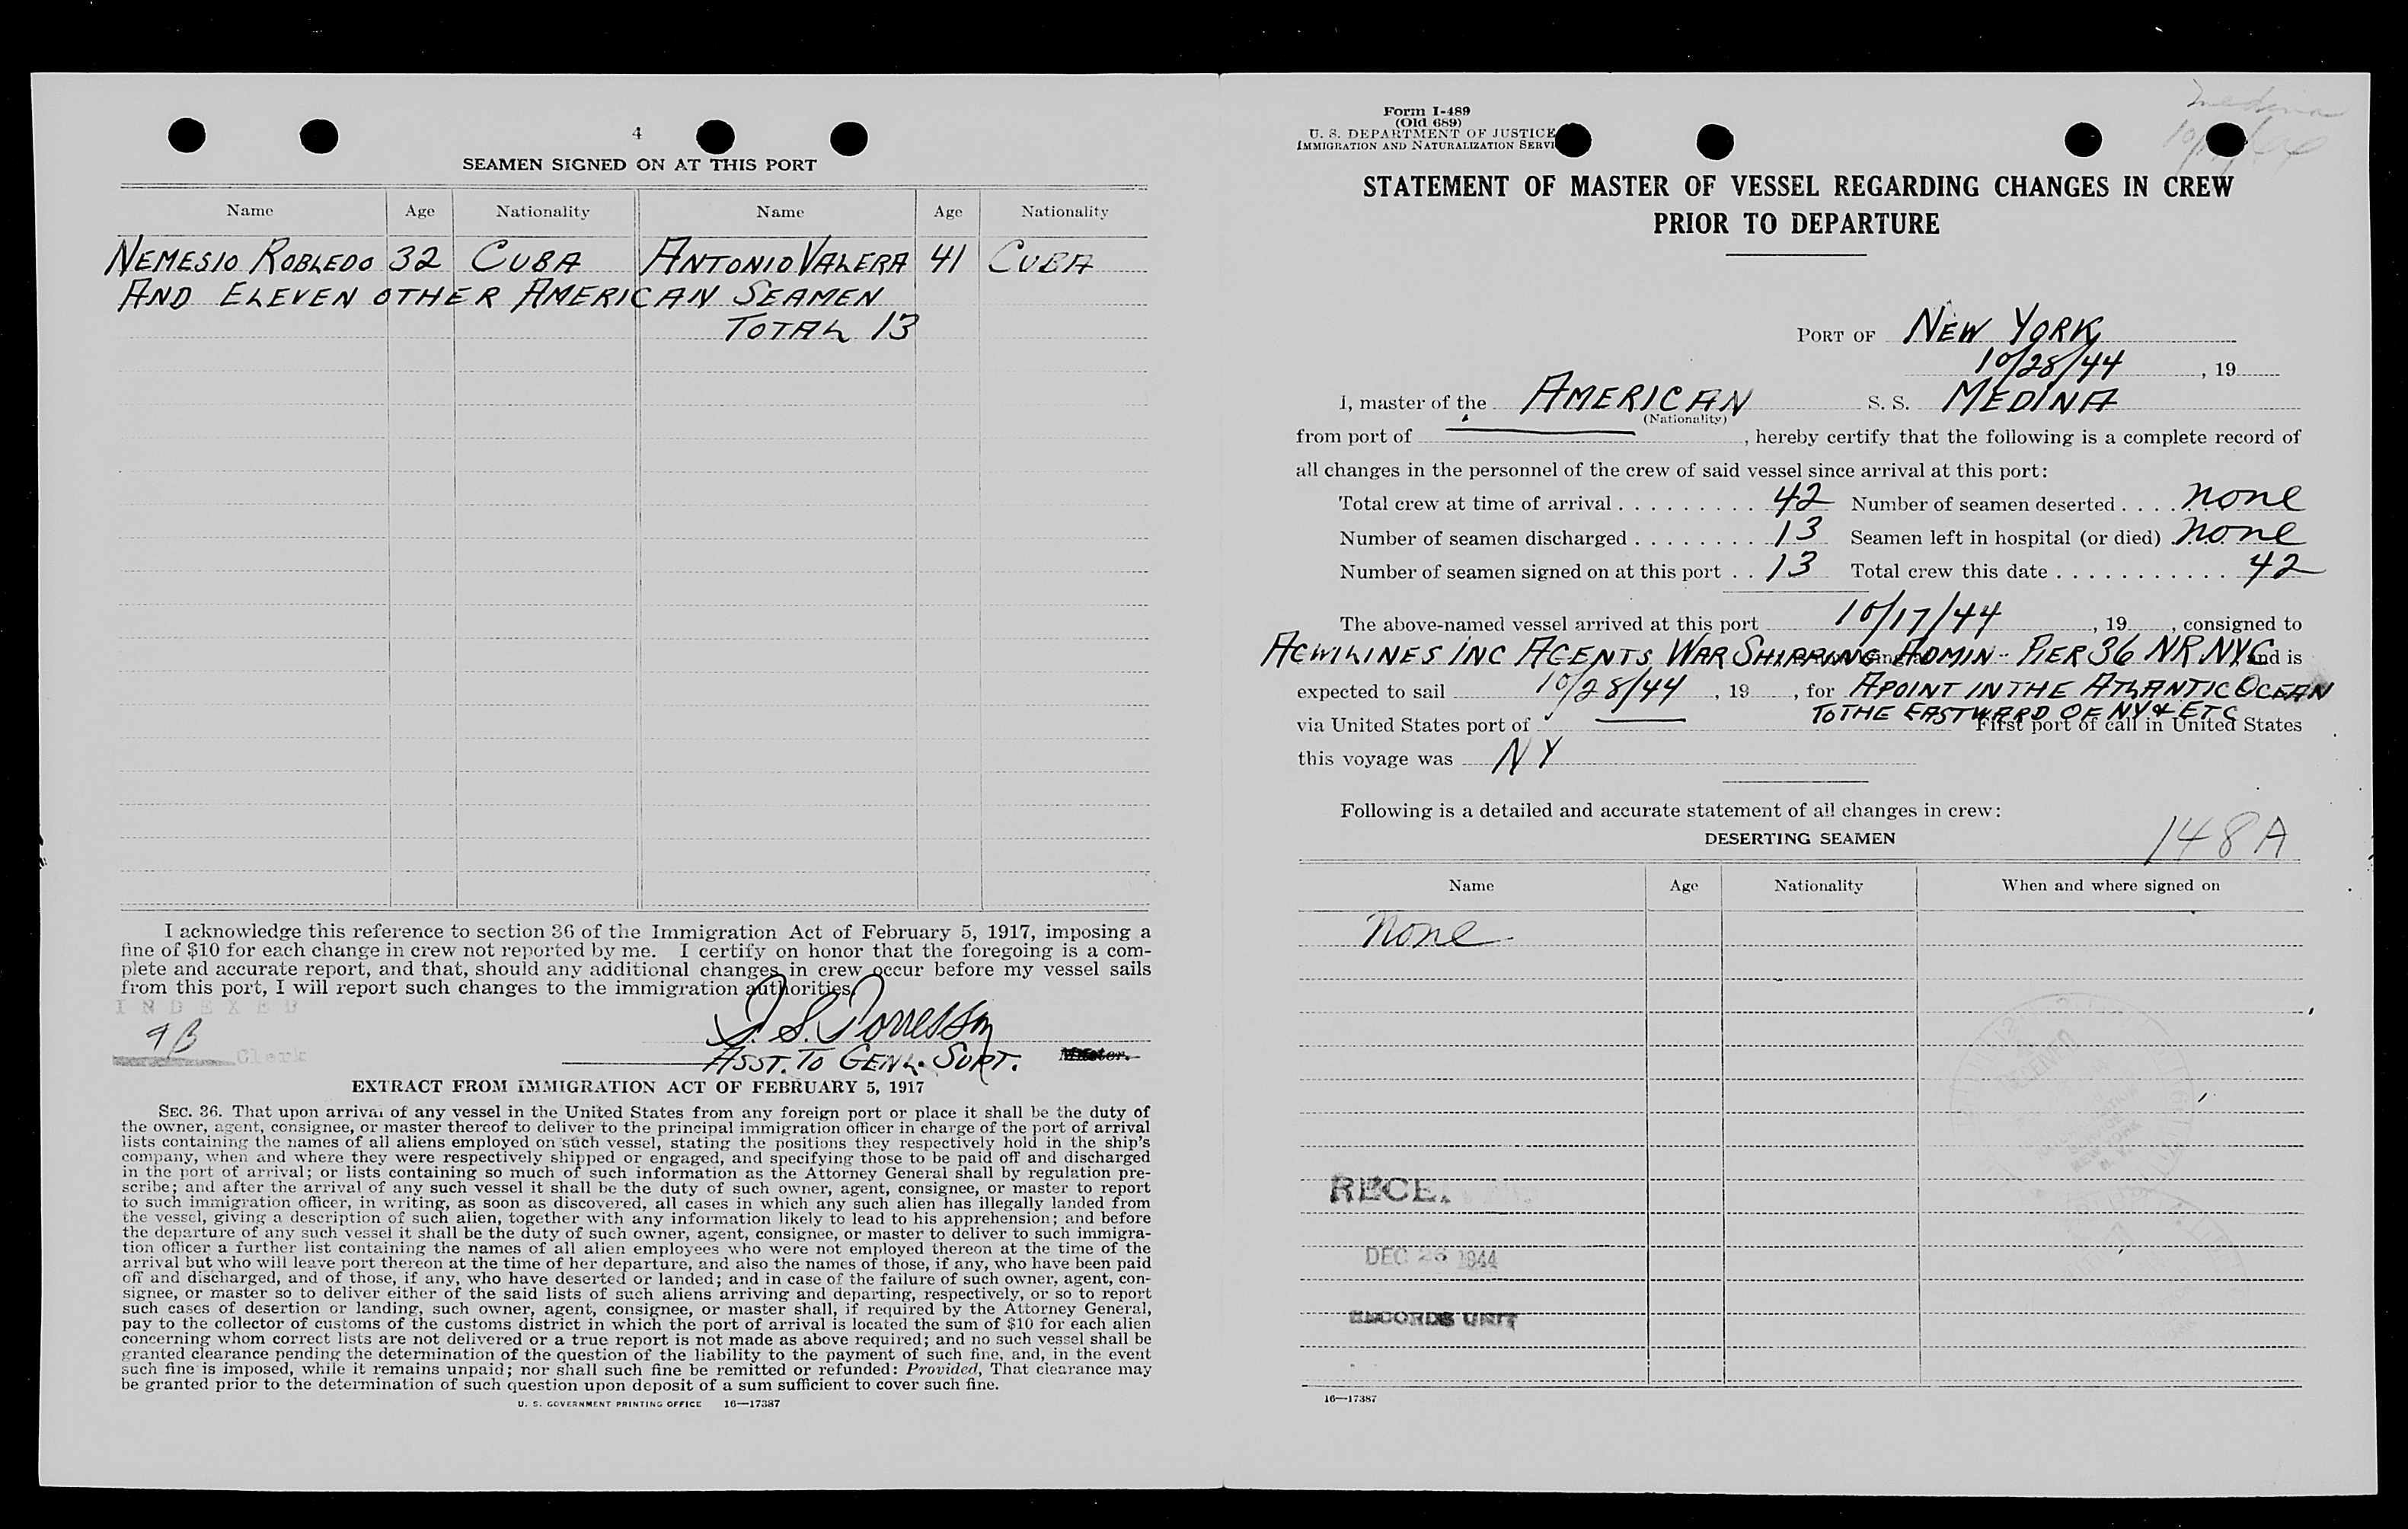 4
SEAMEN SIGNED ON AT THIS PORT
Name Age Nationality Name Age Nationality
NEMESIO ROBLEDO 32 CUBA ANTONIO VALERA 41 CUBA
AND ELEVEN OTHER AMERICAN SEAMEN
TOTAL 13
I acknowledge this reference to section 36 of the Immigration Act of February 5, 1917, imposing a
fine of $10 for each change in crew not reported by me. I certify on honor that the foregoing is a com-
plete and accurate report, and that, should any additional changes in crew occur before my vessel sails
from this port, I will report such changes to the immigration authorities.
INDEXED
Clerk
ASST. TO GENL. SUPT. Master.
EXTRACT FROM IMMIGRATION ACT OF FEBRUARY 5, 1917
SEC. 36. That upon arrival of any vessel in the United States from any foreign port or place it shall be the duty of
the owner, agent, consignee, or master thereof to deliver to the principal immigration officer in charge of the port of arrival
lists containing the names of all aliens employed on such vessel, stating the positions they respectively hold in the ship's
company, when and where they were respectively shipped or engaged, and specifying those to be paid off and discharged
in the port of arrival; or lists containing so much of such information as the Attorney General shall by regulation pre-
scribe; and after the arrival of any such vessel it shall be the duty of such owner, agent, consignee, or master to report
to such immigration officer, in writing, as soon as discovered, all cases in which any such alien has illegally landed from
the vessel, giving a description of such alien, together with any information likely to lead to his apprehension; and before
the departure of any such vessel it shall be the duty of such owner, agent, consignee, or master to deliver to such immigra-
tion officer a further list containing the names of all alien employees who were not employed thereon at the time of the
arrival but who will leave port thereon at the time of her departure, and also the names of those, if any, who have been paid
off and discharged, and of those, if any, who have deserted or landed; and in case of the failure of such owner, agent, con-
signee, or master so to deliver either of the said lists of such aliens arriving and departing, respectively, or so to report
such cases of desertion or landing, such owner, agent, consignee, or master shall, if required by the Attorney General,
pay to the collector of customs of the customs district in which the port of arrival is located the sum of $10 for each alien
concerning whom correct lists are not delivered or a true report is not made as above required; and no such vessel shall be
granted clearance pending the determination of the question of the liability to the payment of such fine, and, in the event
such fine is imposed, while it remains unpaid; nor shall such fine be remitted or refunded: Provided, That clearance may
be granted prior to the determination of such question upon deposit of a sum sufficient to cover such fine.
U. S. GOVERNMENT PRINTING OFFICE 16—17387
Medina
Form I-489
(Old 689)
U. S. DEPARTMENT OF JUSTICE
IMMIGRATION AND NATURALIZATION SERVI
STATEMENT OF MASTER OF VESSEL REGARDING CHANGES IN CREW
PRIOR TO DEPARTURE
PORT OF NEW YORK
10/28/44, 19
I, master of the AMERICAN S. S. MEDINA
(Nationality)
from port of , hereby certify that the following is a complete record of
all changes in the personnel of the crew of said vessel since arrival at this port:
Total crew at time of arrival 42 Number of seamen deserted none
Number of seamen discharged 13 Seamen left in hospital (or died) none
Number of seamen signed on at this port 13 Total crew this date 42
The above-named vessel arrived at this port 10/17/44, 19, consigned to
AGWILINES INC AGENTS WAR SHIPPING ADMIN - PIER 36 NR NYC and is
expected to sail 10/28/44, 19, for A POINT IN THE ATLANTIC OCEAN
TO THE EASTWARD OF NY & ETC
via United States port of First port of call in United States
this voyage was NY
Following is a detailed and accurate statement of all changes in crew:
DESERTING SEAMEN
148A
Name Age Nationality When and where signed on
none
RECE
DEC 26 1944
RECORDS UNIT
16—17387